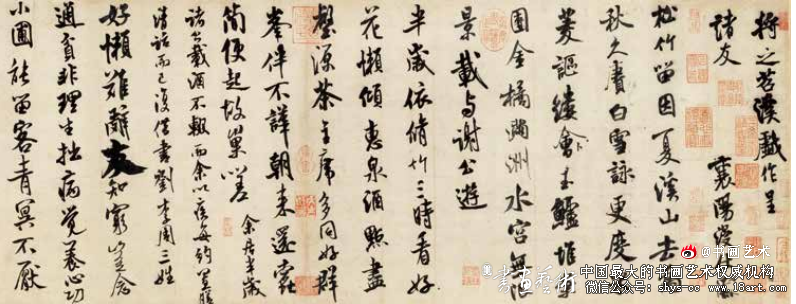 將之苕溪戲作呈
諸友 襄陽漫仕
松竹留因夏溪山去爲
秋久賡白雪詠更度
菱謳縷會玉鱸堆
團金橘滿洲水宮無限
景載與謝公遊
半歲依脩竹三時看好
花懶傾惠泉酒點盡
壑源茶主席多同好群
峯伴不譁朝來還蠹
簡便起故巢嗟 余居半歲
諸公載酒不輟而余以疾每約置膳
清話而已復借書劉李周三姓
好懶難辭友知窮豈念
通貧非理生拙病覺養心功
小圃能留客青冥不厭
@书画艺术
書畫藝術
中国最大的书画艺术权威机构
微信公众号：shys-cc www.18art.com